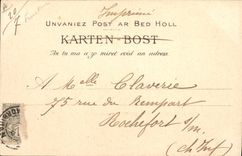 Imprimé
UNVANIEZ POST AR BED HOLL
KARTEN-BOST
An tu ma a zo miret evid an adres.
A Melle Claverie
75 rue du Rempart
Rochefort s/m.
(Ch. Inf)